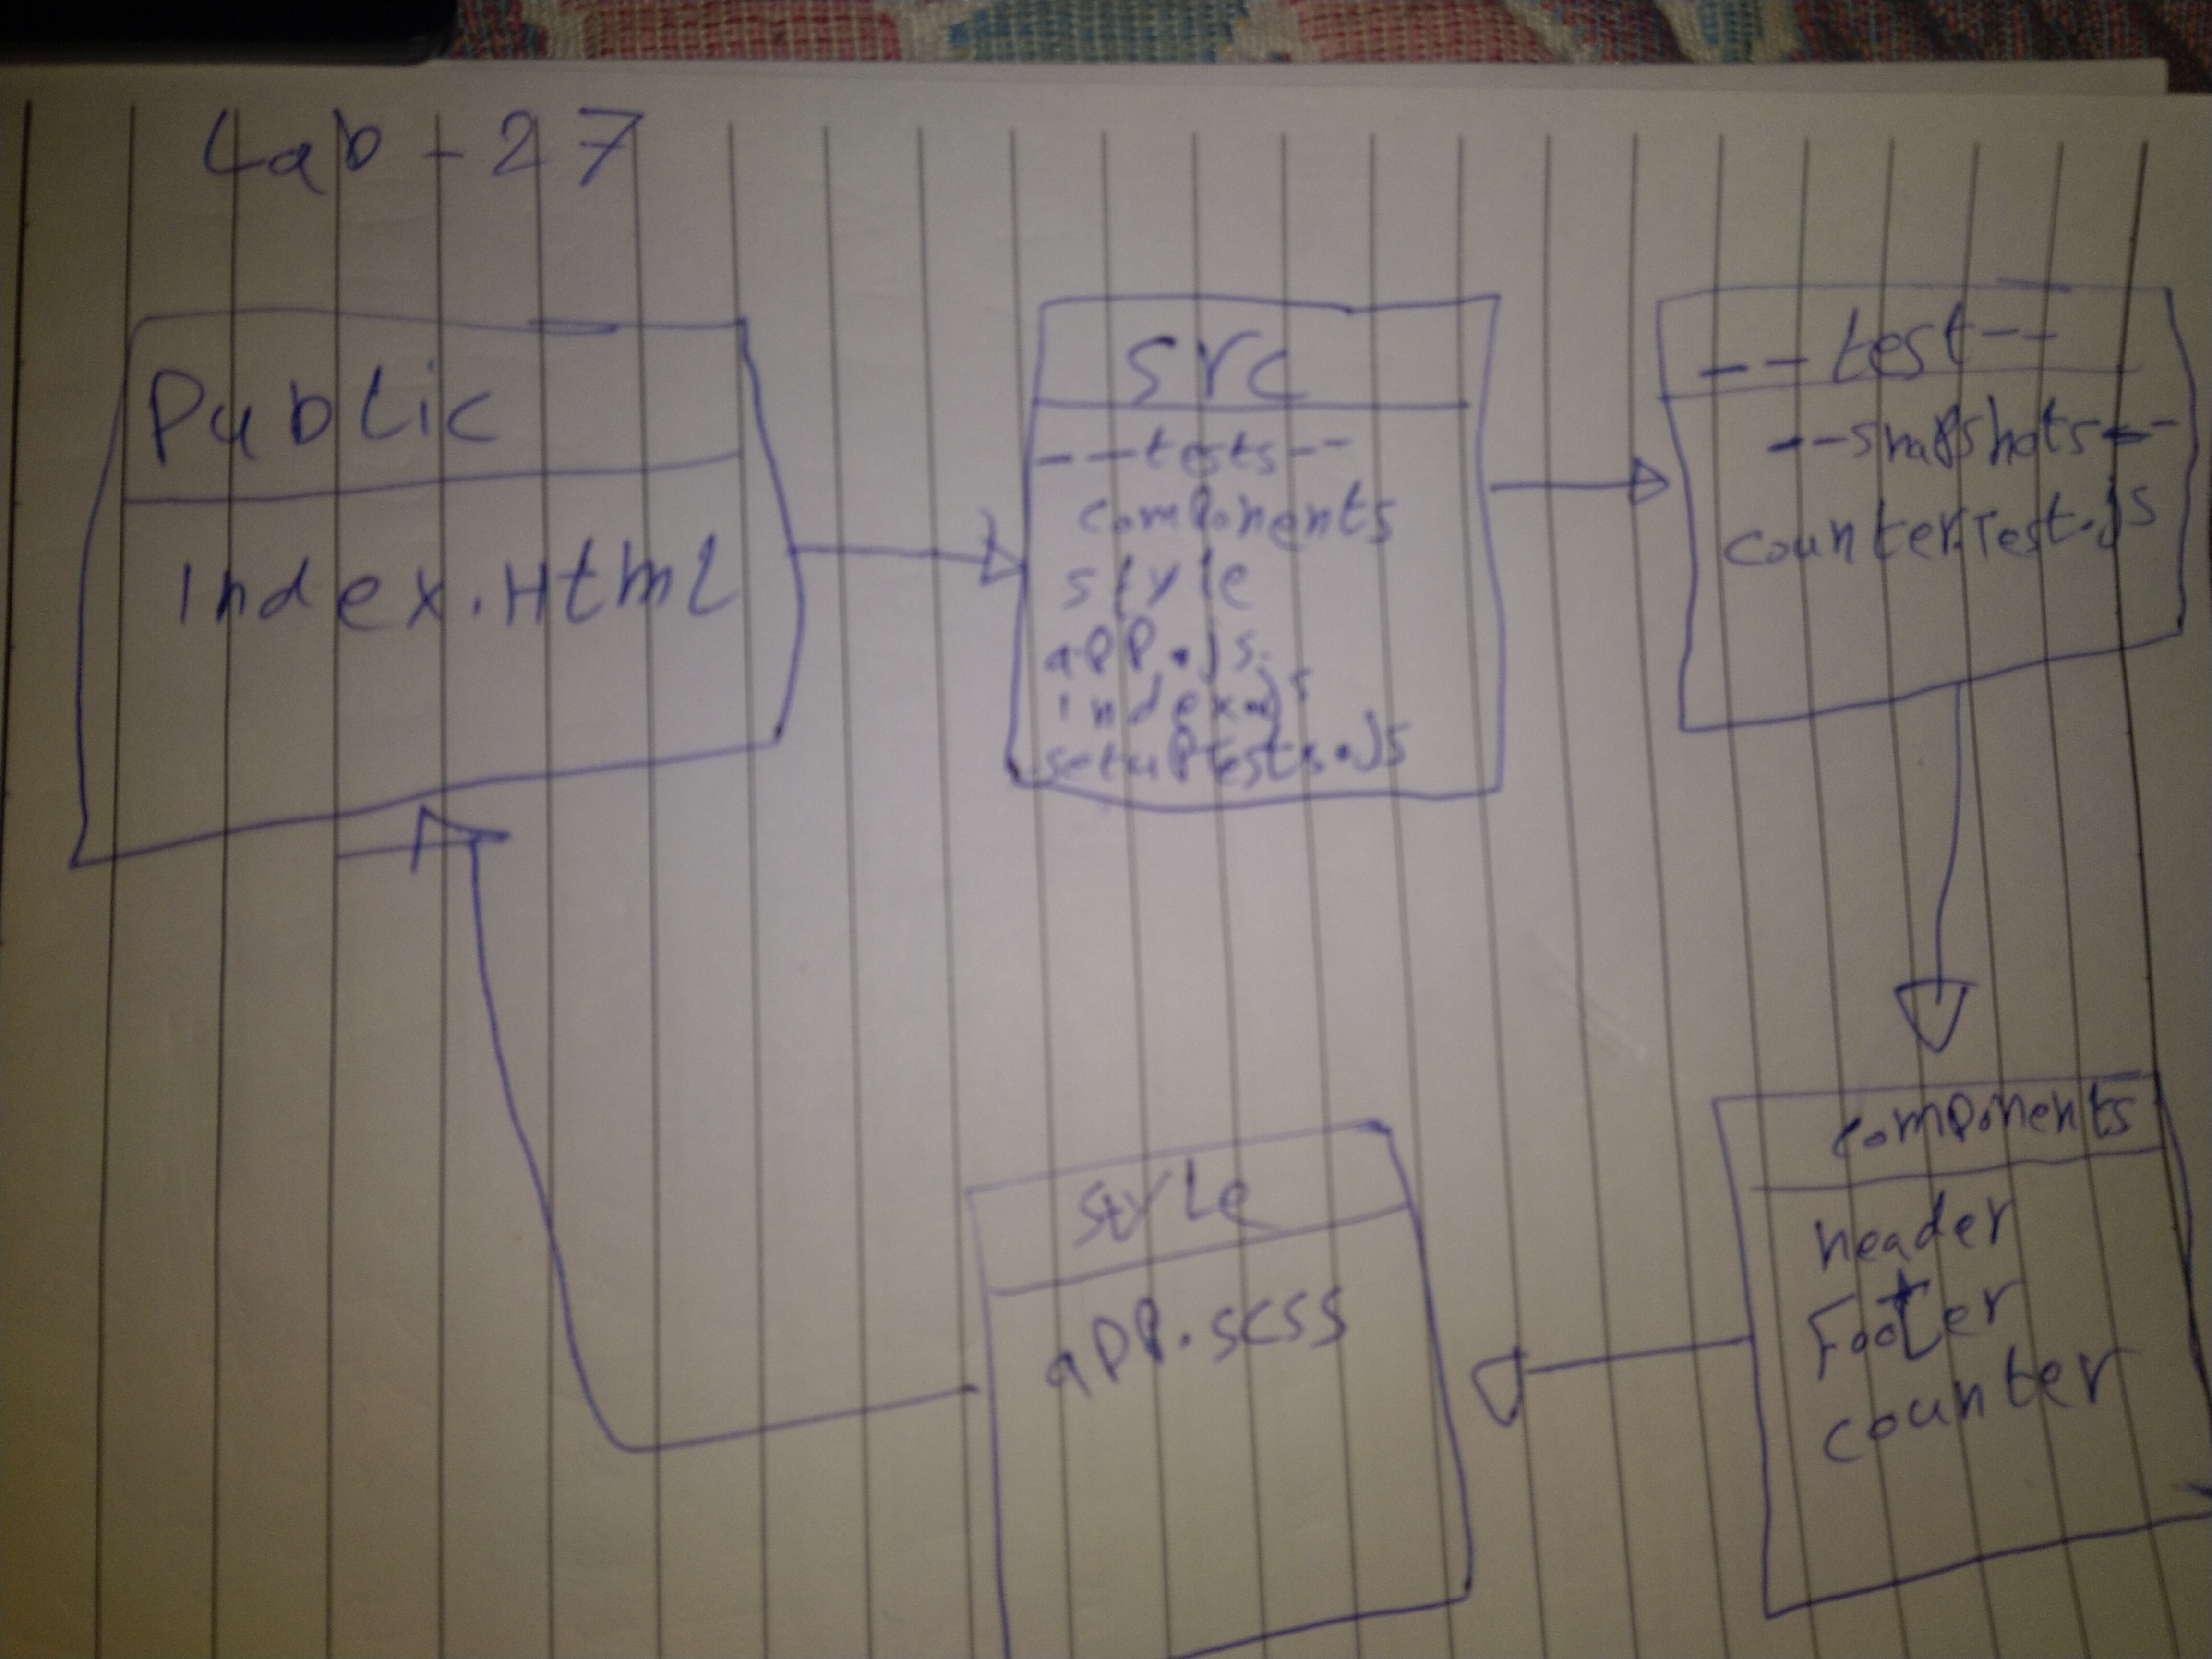 Lab - 27
Public
index.Html
src
--tests--
components
style
app.js
index.js
setupTests.js
--test--
--snapshots--
counterTest.js
components
header
Footer
counter
style
app.scss